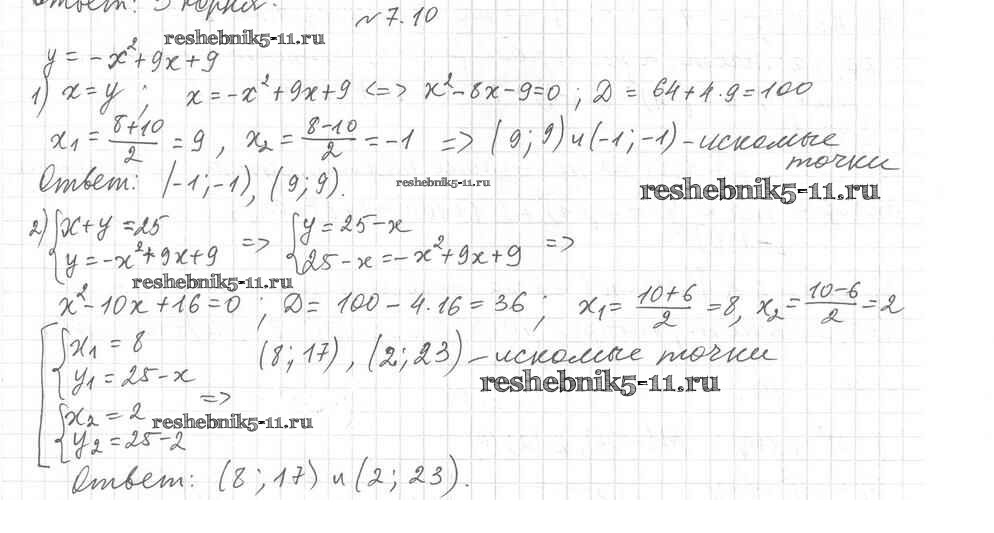 Ответ: 3 корня.
№7.10
reshebnik5-11.ru
y = -x² + 9x + 9
1) x = y ; x = -x² + 9x + 9 <=> x² - 8x - 9 = 0 ; D = 64 + 4·9 = 100
x₁ = (8+10)/2 = 9 , x₂ = (8-10)/2 = -1 => (9; 9) и (-1; -1) - искомые
точки
Ответ: (-1; -1), (9; 9).
reshebnik5-11.ru
reshebnik5-11.ru
2) { x + y = 25 => { y = 25 - x
{ y = -x² + 9x + 9 { 25 - x = -x² + 9x + 9 =>
reshebnik5-11.ru
x² - 10x + 16 = 0 ; D = 100 - 4·16 = 36 ; x₁ = (10+6)/2 = 8, x₂ = (10-6)/2 = 2
[ { x₁ = 8 (8; 17) , (2; 23) - искомые точки
{ y₁ = 25 - x
reshebnik5-11.ru
=>
{ x₂ = 2
reshebnik5-11.ru
{ y₂ = 25 - 2
Ответ: (8; 17) и (2; 23).